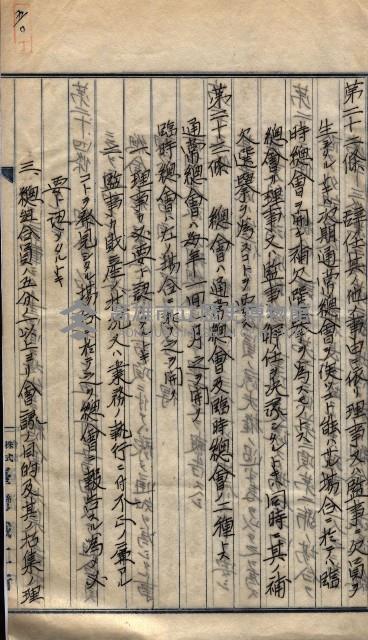 第二十二條　辭任其ノ他ノ事由ニ依リ理事又ハ監事ニ欠員ヲ
生ジタルトキハ次期通常總會ヲ俟ツコト能ハザル場合ニ於テハ臨
時總會ヲ開キ補欠選擧ヲ為スモノトス
總會ニ理事又ハ監事ノ解任ヲ決議シタルトキハ同時ニ其ノ補
欠選擧ヲ為スコトヲ要ス
第二十三條　總會ハ通常總會及臨時總會ノ二種トス
通常總會ハ毎年一回　月之ヲ開ク
臨時總會ハ左ノ場合ニ之ヲ開ク
一、理事ガ必要ト認メタルトキ
二、監事ガ財産ノ狀況又ハ業務ノ執行ニ付不正ノ廉アル
コトヲ發見シタル場合ニ於テ之ヲ總會ニ報告スル為メ必
要ト認メタルトキ
三、總組合員ノ五分ノ一以上ヨリ會議ノ目的及其ノ招集ノ理
株式
臺灣鐵工所